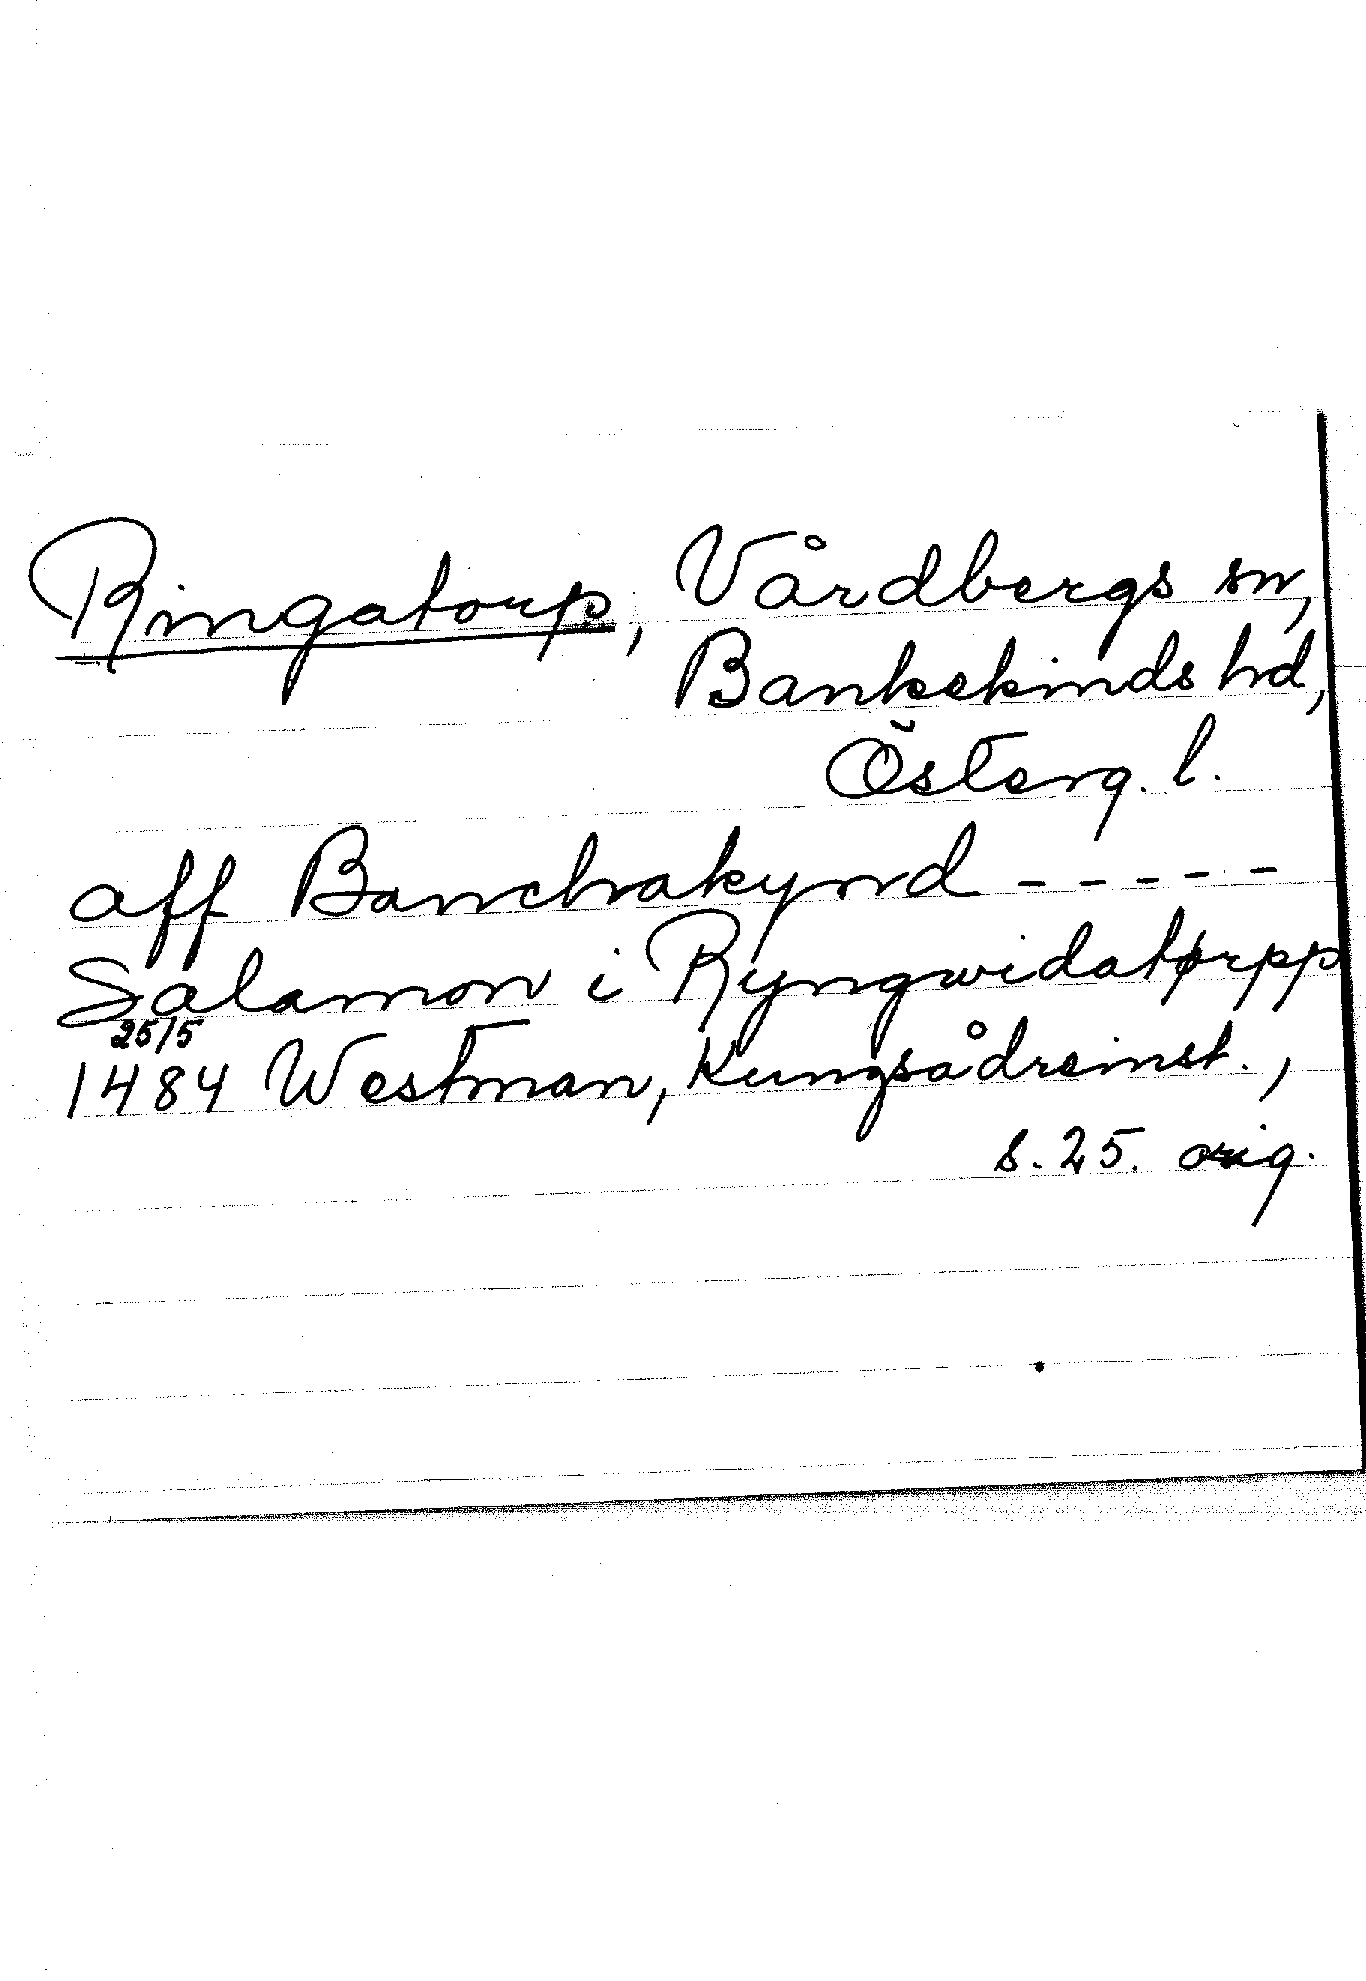 Ringatorp, Vårdbergs sn,
Bankekinds hd,
Österg. l.
aff Banchakynd -----
Salamon i Ryngwidatørpp
25/5
1484 Westman, Kungsådreinst.,
s. 25. orig.